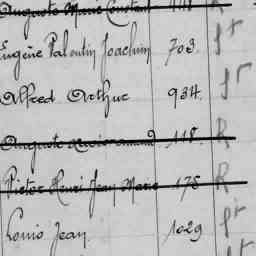 Auguste Marie Constant 441 R
Eugène Valentin Joachim 703. ft
Alfred Arthur 934. ft
Auguste 118. R
Victor Henri Jean Marie 175 R
Louis Jean 1029 ft